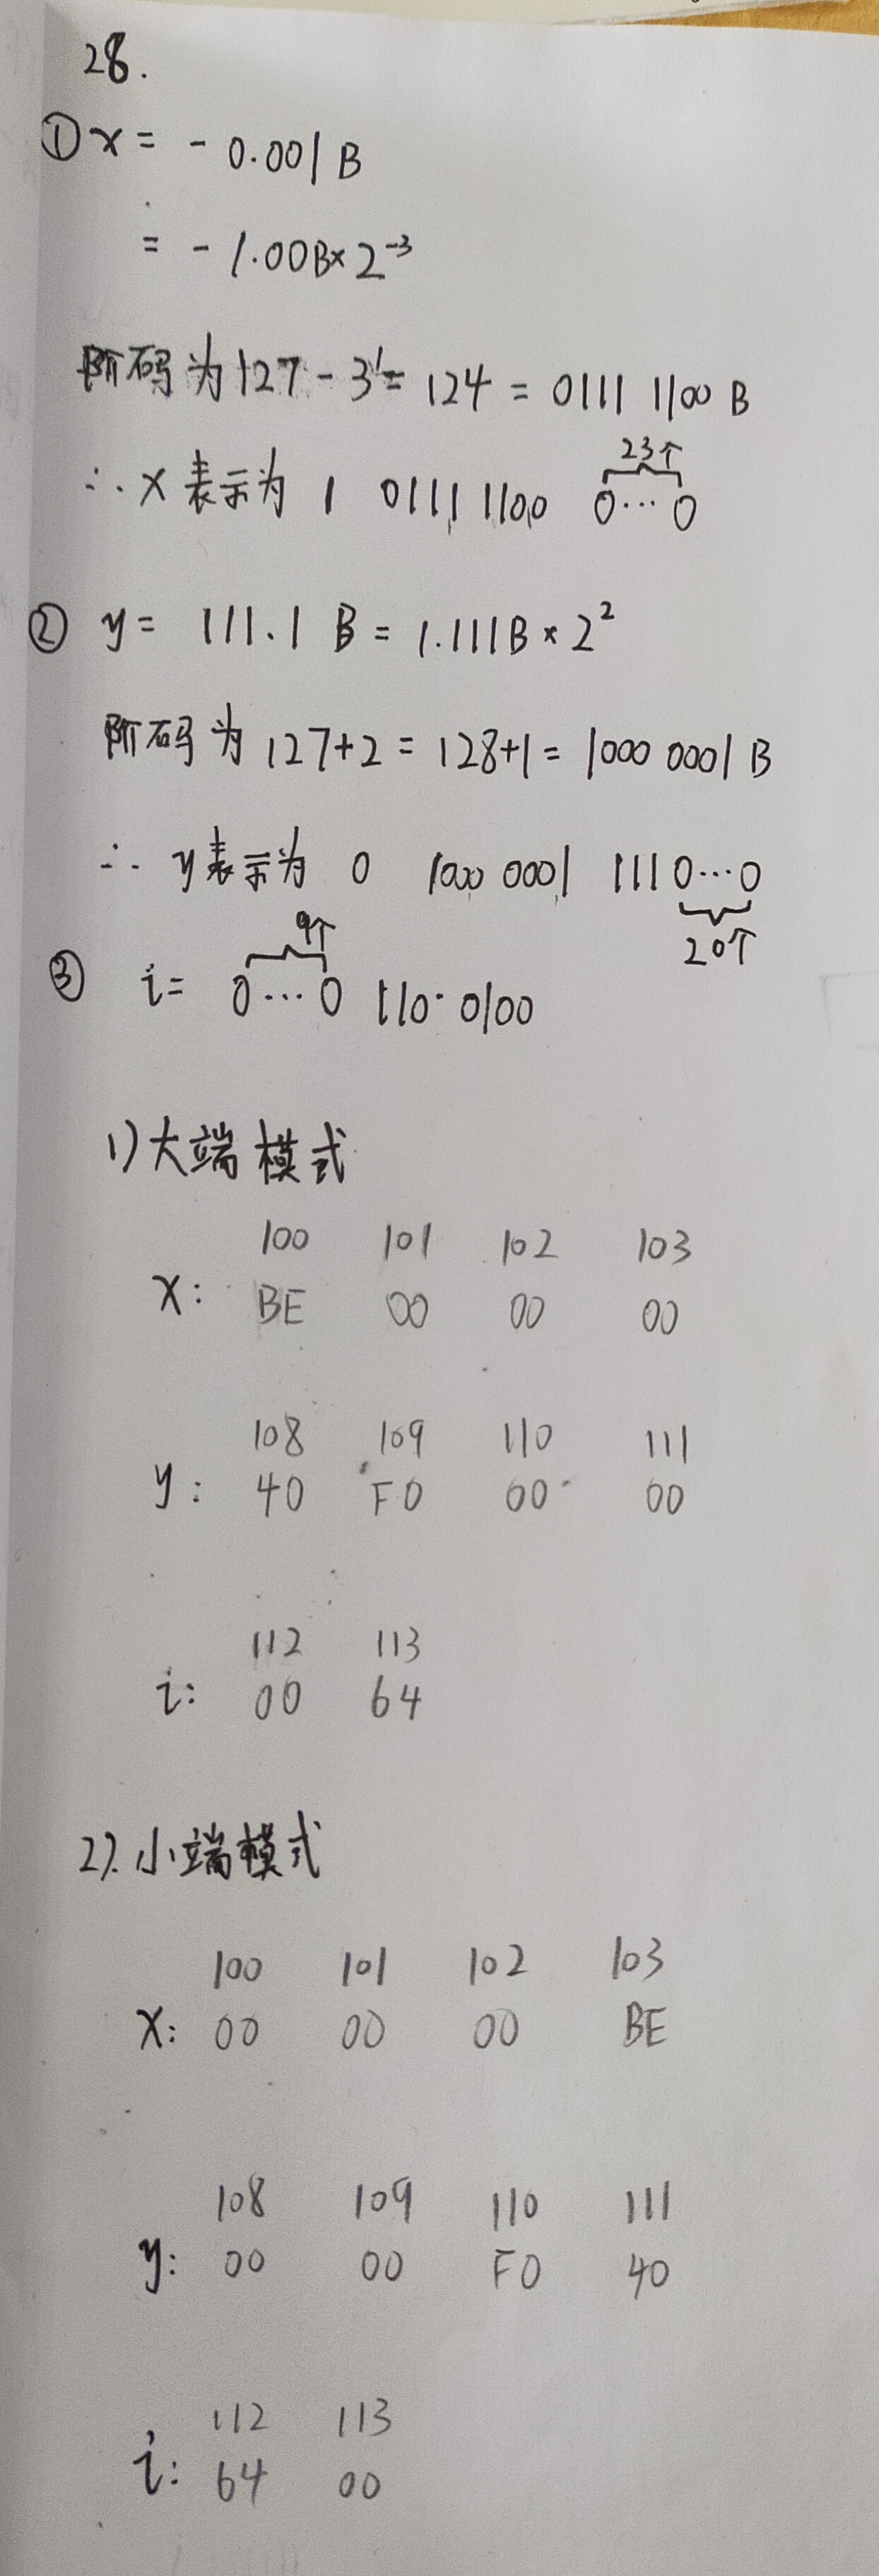 28.
① x = - 0.001 B
= - 1.00B× 2⁻³
阶码为 127 - 3 = 124 = 0111 1100 B
23个
∴ x 表示为 1 0111 1100 0…0
② y = 111.1 B = 1.111B × 2²
阶码为 127+2 = 128+1 = 1000 0001 B
∴ y表示为 0 1000 0001 1110…0
20个
9个
③ i = 0…0 110 0100
1) 大端模式
100 101 102 103
x: BE 00 00 00
108 109 110 111
y: 40 F0 00 00
112 113
i: 00 64
2). 小端模式
100 101 102 103
x: 00 00 00 BE
108 109 110 111
y: 00 00 F0 40
112 113
i: 64 00